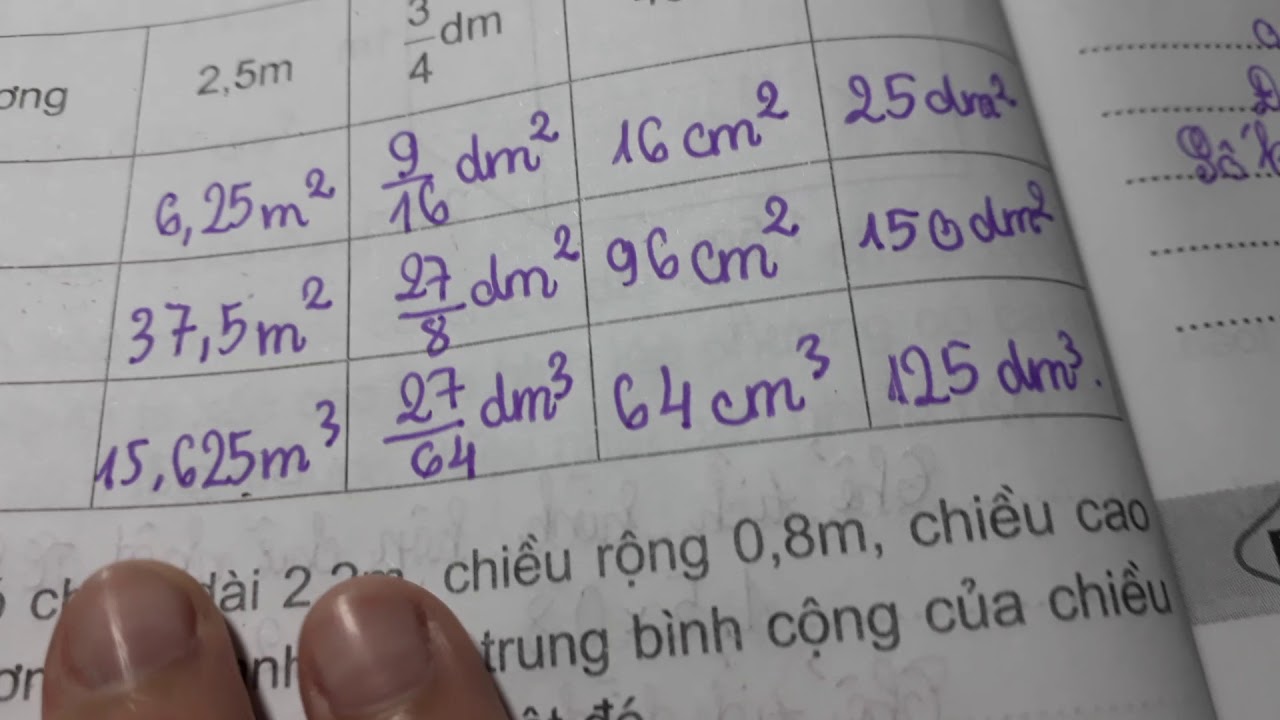 ơng 2,5m 3/4 dm
6,25m² 9/16 dm² 16cm² 25dm²
37,5m² 27/8 dm² 96cm² 150dm²
15,625m³ 27/64 dm³ 64cm³ 125dm³.
dài 2 chiều rộng 0,8m, chiều cao
trung bình cộng của chiều
đó